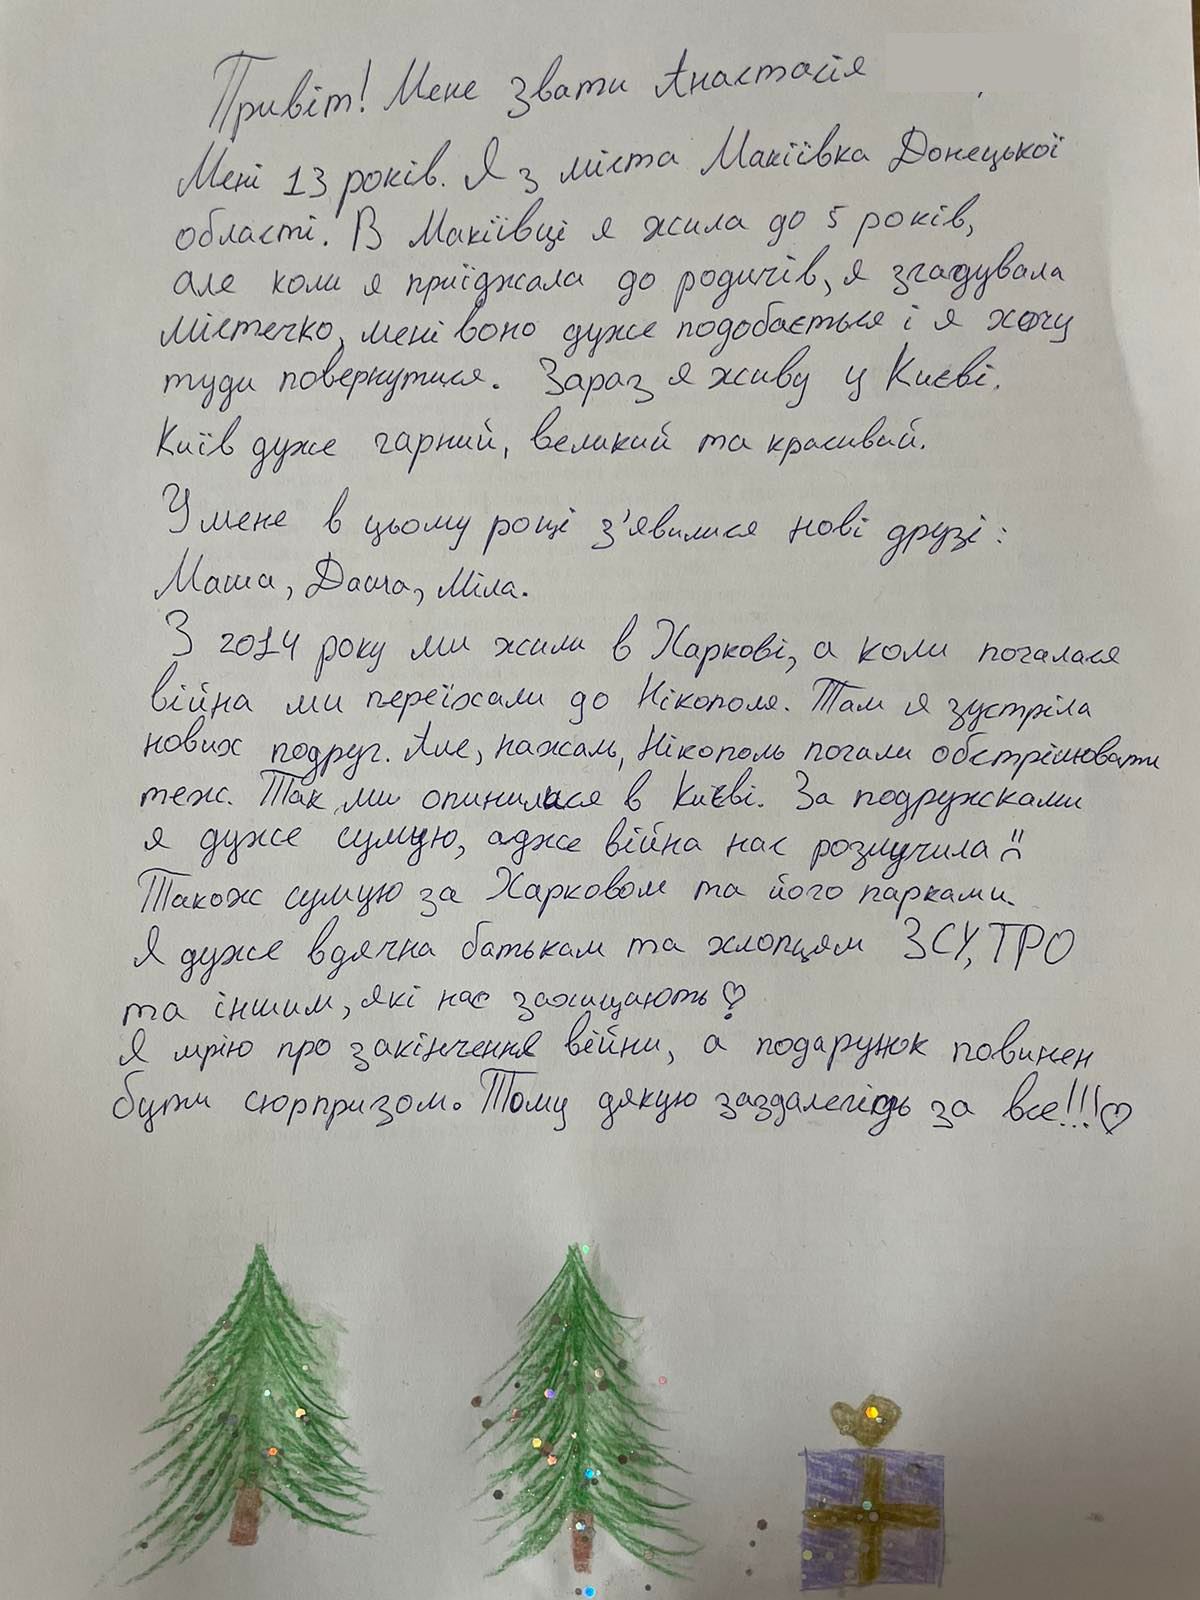 Привіт! Мене звати Анастасія
Мені 13 років. Я з міста Макіївка Донецької
області. В Макіївці я жила до 5 років,
але коли я приїджала до родичів, я згадувала
містечко, мені воно дуже подобається і я хочу
туди повернутися. Зараз я живу у Києві.
Київ дуже гарний, великий та красивий.
У мене в цьому році з'явилися нові друзі:
Маша, Даша, Міла.
З 2014 року ми жили в Харкові, а коли почалася
війна ми переїхали до Нікополя. Там я зустріла
нових подруг. Але, нажаль, Нікополь почали обстрілювати
теж. Так ми опинилися в Києві. За подружками
я дуже сумую, адже війна нас розлучила
Також сумую за Харковом та його парками.
Я дуже вдячна батькам та хлопцям ЗСУ, ТРО
та іншим, які нас захищають
Я мрію про закінчення війни, а подарунок повинен
бути сюрпризом. Тому дякую заздалегідь за все!!!♡